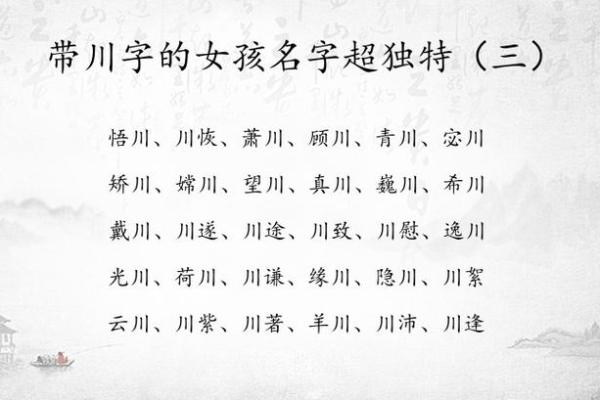 带川字的女孩名字超独特（三）
悟川、川恢、萧川、顾川、青川、宓川
矫川、嫦川、望川、真川、巍川、希川
戴川、川遂、川途、川致、川慰、逸川
光川、荷川、川谦、缘川、隐川、川絮
云川、川紫、川著、羊川、川沛、川逢